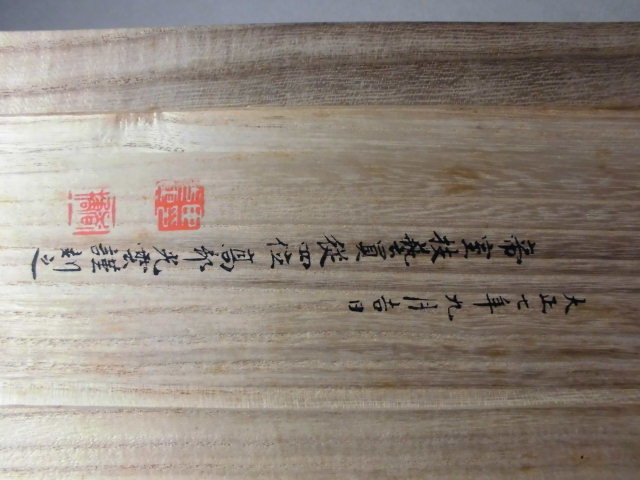 大正七年九月吉日
帝室技藝員從四位高邨光雲謹刻之